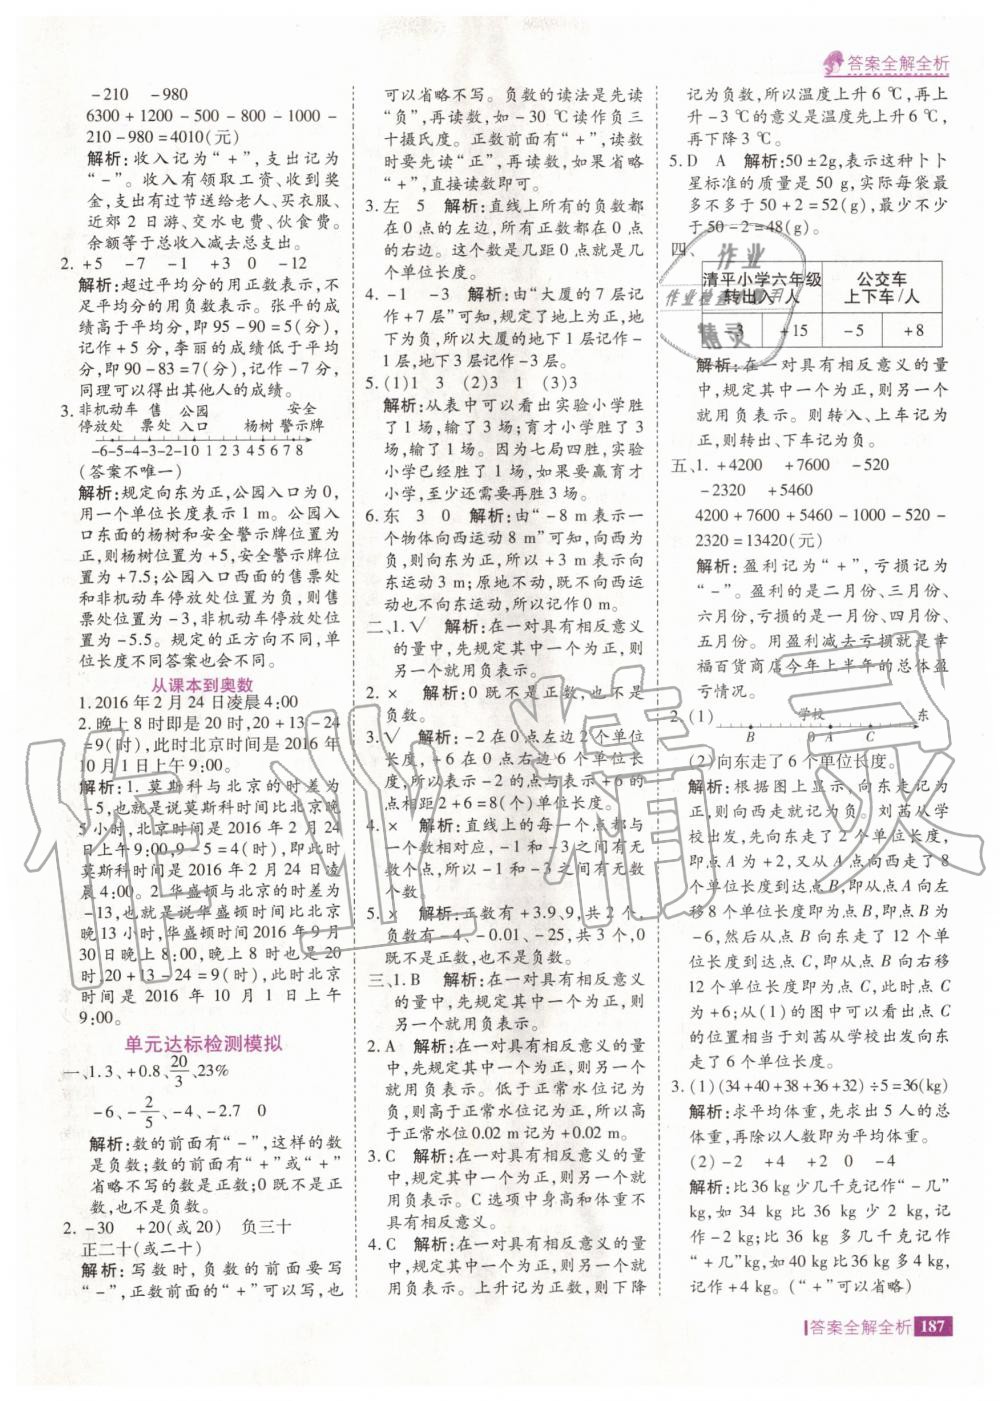 答案全解全析
-210 -980
6300+1200-500-800-1000-
210-980=4010(元)
解析:收入记为“+”,支出记为
“-”。收入有领取工资、收到奖
金,支出有过节送给老人、买衣服、
近郊2日游、交水电费、伙食费。
余额等于总收入减去总支出。
2. +5 -7 -1 +3 0 -12
解析:超过平均分的用正数表示,不
足平均分的用负数表示。张平的成
绩高于平均分,即95-90=5(分),
记作+5,李丽的成绩低于平均分,
即90-83=7(分),记作-7分,
同理可以得出其他人的成绩。
3. 非机动车 售 公园 安全
停放处 票处 入口 杨树 警示牌
-6-5-4-3-2-10 1 2 3 4 5 6 7 8
(答案不唯一)
解析:规定向东为正,公园入口为0,
用一个单位长度表示1 m。公园入
口东面的杨树和安全警示牌位置为
正,则杨树位置为+5,安全警示牌位
置为+7.5;公园入口西面的售票处
和非机动车停放处位置为负,则售
票处位置为-3,非机动车停放处位置
为-5.5。规定的正方向不同,单
位长度不同答案也会不同。
从课本到奥数
1.2016年2月24日凌晨4:00
2.晚上8时即是20时,20+13-24
=9(时),此时北京时间是2016年
10月1日上午9:00。
解析:1.莫斯科与北京的时差为
-5,也就是说莫斯科时间比北京晚
5小时,北京时间是2016年2月24
日上午9:00,9-5=4(时),即此时
莫斯科时间是2016年2月24日凌
晨4:00。2.华盛顿与北京的时差为
-13,也就是说华盛顿时间比北京
晚13小时,华盛顿时间2016年9月
30日晚上8:00,晚上8时也是20
时,20+13-24=9(时),此时北京
时间是2016年10月1日上午
9:00。
单元达标检测模拟
一、1.3、+0.8、20/3、23%
-6、-2/5、-4、-2.7 0
解析:数的前面有“-”,这样的数
是负数;数的前面有“+”或“+”
省略不写的数是正数;0既不是正
数,也不是负数。
2. -30 +20(或20) 负三十
正二十(或二十)
解析:写数时,负数的前面要写
“-”,正数前面的“+”可以写,也
可以省略不写。负数的读法是先读
“负”,再读数,如-30 ℃读作负三
十摄氏度。正数前面有“+”,读数
时要先读“正”,再读数,如果省略
“+”,直接读数即可。
3.左 5 解析:直线上所有的负数都
在0点的左边,所有正数都在0点
的右边。这个数是几距0点就是几
个单位长度。
4. -1 -3 解析:由“大厦的7层记
作+7层”可知,规定了地上为正,地
下为负,所以大厦的地下1层记作-
1层,地下3层记作-3层。
5.(1)1 3 (2)3 1 (3)3
解析:从表中可以看出实验小学胜
了1场,输了3场;育才小学胜了3
场,输了1场。因为七局四胜,实验
小学已经胜了1场,如果要赢育才
小学,至少还需要再胜3场。
6.东 3 0 解析:由“-8 m表示一
个物体向西运动8 m”可知,向西为
负,则向东为正,所以+3 m表示向
东运动3 m;原地不动,既不向西运
动也不向东运动,所以记作0 m。
二、1.√ 解析:在一对具有相反意义
的量中,先规定其中一个为正,则
另一个就用负表示。
2. × 解析:0既不是正数,也不是
负数。
3.√ 解析:-2在0点左边2个单位
长度,+6在0点右边6个单位长
度,所以表示-2的点与表示+6的
点相距2+6=8(个)单位长度。
4. × 解析:直线上的每一个点都与
一个数相对应,-1和-3之间有无
数个点,所以-1和-3之间有无数
个数。
5. × 解析:正数有+3.9、9,共2个,
负数有-4、-0.01、-25,共3个,0
既不是正数,也不是负数。
三、1.B 解析:在一对具有相反意义
的量中,先规定其中一个为正,则
另一个就用负表示。
2.A 解析:在一对具有相反意义的量
中,先规定其中一个为正,则另一个
就用负表示。低于正常水位记为
负,则高于正常水位记为正,所以高
于正常水位0.02 m记为+0.02 m。
3.C 解析:在一对具有相反意义的量
中,规定其中一个为正,则另一个就
用负表示。C选项中身高和体重不
具有相反意义。
4.C 解析:在一对具有相反意义的量
中,规定其中一个为正,则另一个就
用负表示。上升记为正数,则下降
记为负数,所以温度上升6 ℃,再上
升-3 ℃的意义是温度先上升6 ℃,
再下降3 ℃。
5.D A 解析:50±2g,表示这种卜卜
星标准的质量是50 g,实际每袋最
多不多于50+2=52(g),最少不少
于50-2=48(g)。
四、
清平小学六年级 公交车
转出入/人 上下车/人
-3 +15 -5 +8
解析:在一对具有相反意义的量
中,规定其中一个为正,则另一个
就用负表示。则转入、上车记为
正,则转出、下车记为负。
五、1. +4200 +7600 -520
-2320 +5460
4200+7600+5460-1000-520-
2320=13420(元)
解析:盈利记为“+”,亏损记为
“-”。盈利的是二月份、三月份、
六月份,亏损的是一月份、四月份、
五月份。用盈利减去亏损就是幸
福百货商店今年上半年的总体盈
亏情况。
2.(1) 学校 东
B 0 A C
(2)向东走了6个单位长度。
解析:根据图上显示,向东走记为
正,则向西走就记为负。刘茜从学
校出发,先向东走了2个单位长度,
即点A为+2,又从点A向西走了8
个单位长度到达点B,即从点A向左
移8个单位长度即为点B,即点B为
-6,然后从点B向东走了12个单位
长度到达点C,即从点B向右移
12个单位长度即为点C,此时点C
为+6;从(1)的图中可以看出点C
的位置相当于刘茜从学校出发向东
走了6个单位长度。
3.(1)(34+40+38+36+32)÷5=36(kg)
解析:求平均体重,先求出5人的总
体重,再除以人数即为平均体重。
(2)-2 +4 +2 0 -4
解析:比36 kg少几千克记作“-几”
kg,如34 kg比36 kg少2 kg,记
作-2 kg;比36 kg多几千克记作
“+几”kg,如40 kg比36 kg多4 kg,
记作+4 kg。(“+”可以省略)
答案全解全析 187
作业精灵
作业
作业检查小助手
精灵